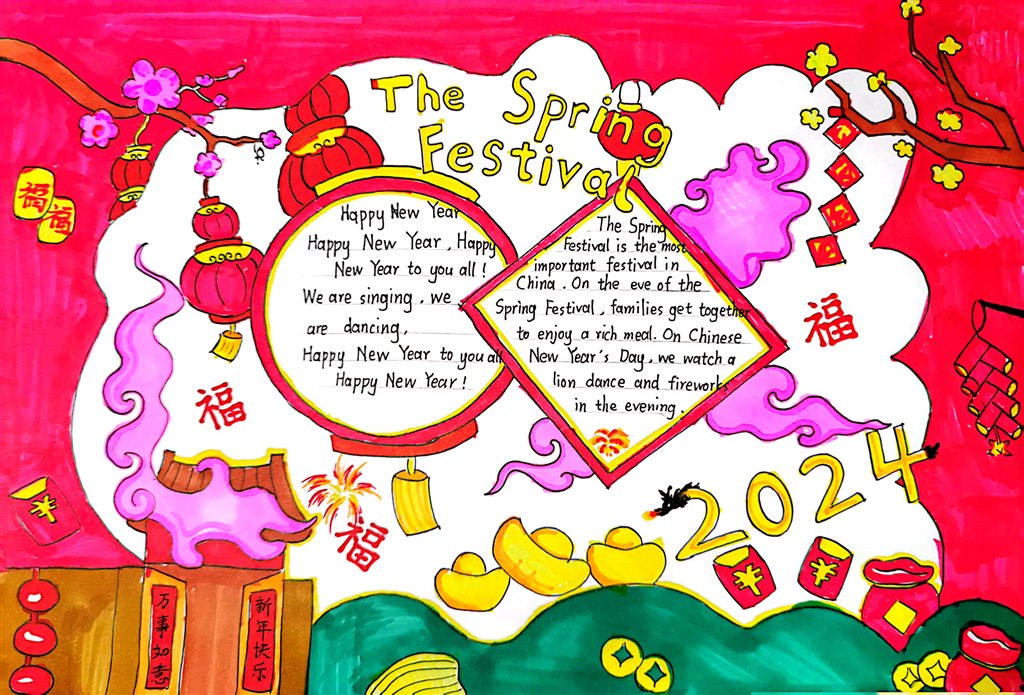 The Spring
Festival
Happy New Year
Happy New Year, Happy
New Year to you all!
We are singing, we
are dancing,
Happy New Year to you all
Happy New Year!
The Spring
Festival is the most
important festival in
China. On the eve of the
Spring Festival, families get together
to enjoy a rich meal. On Chinese
New Year's Day, we watch a
lion dance and fireworks
in the evening.
福
福
福
福
福
2024
万事如意
新年快乐